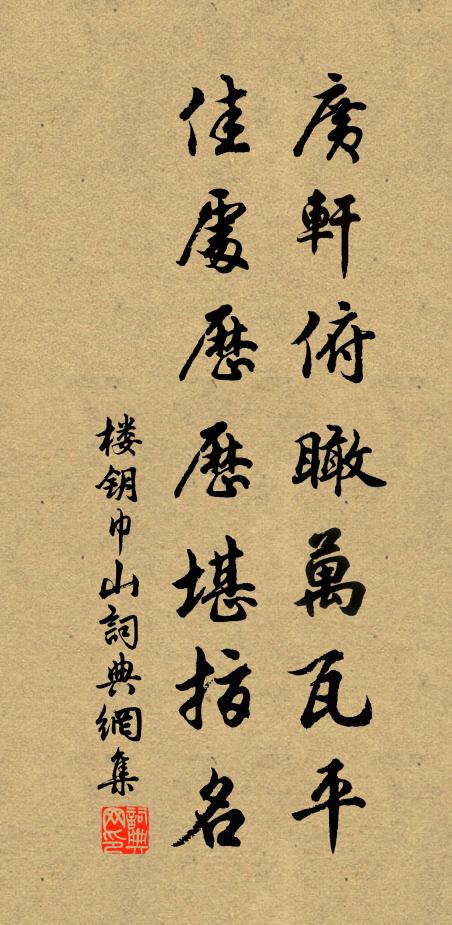 廣軒俯瞰萬瓦平
佳處歷歷堪指名
楼钥巾山詞典網集
詞典網印